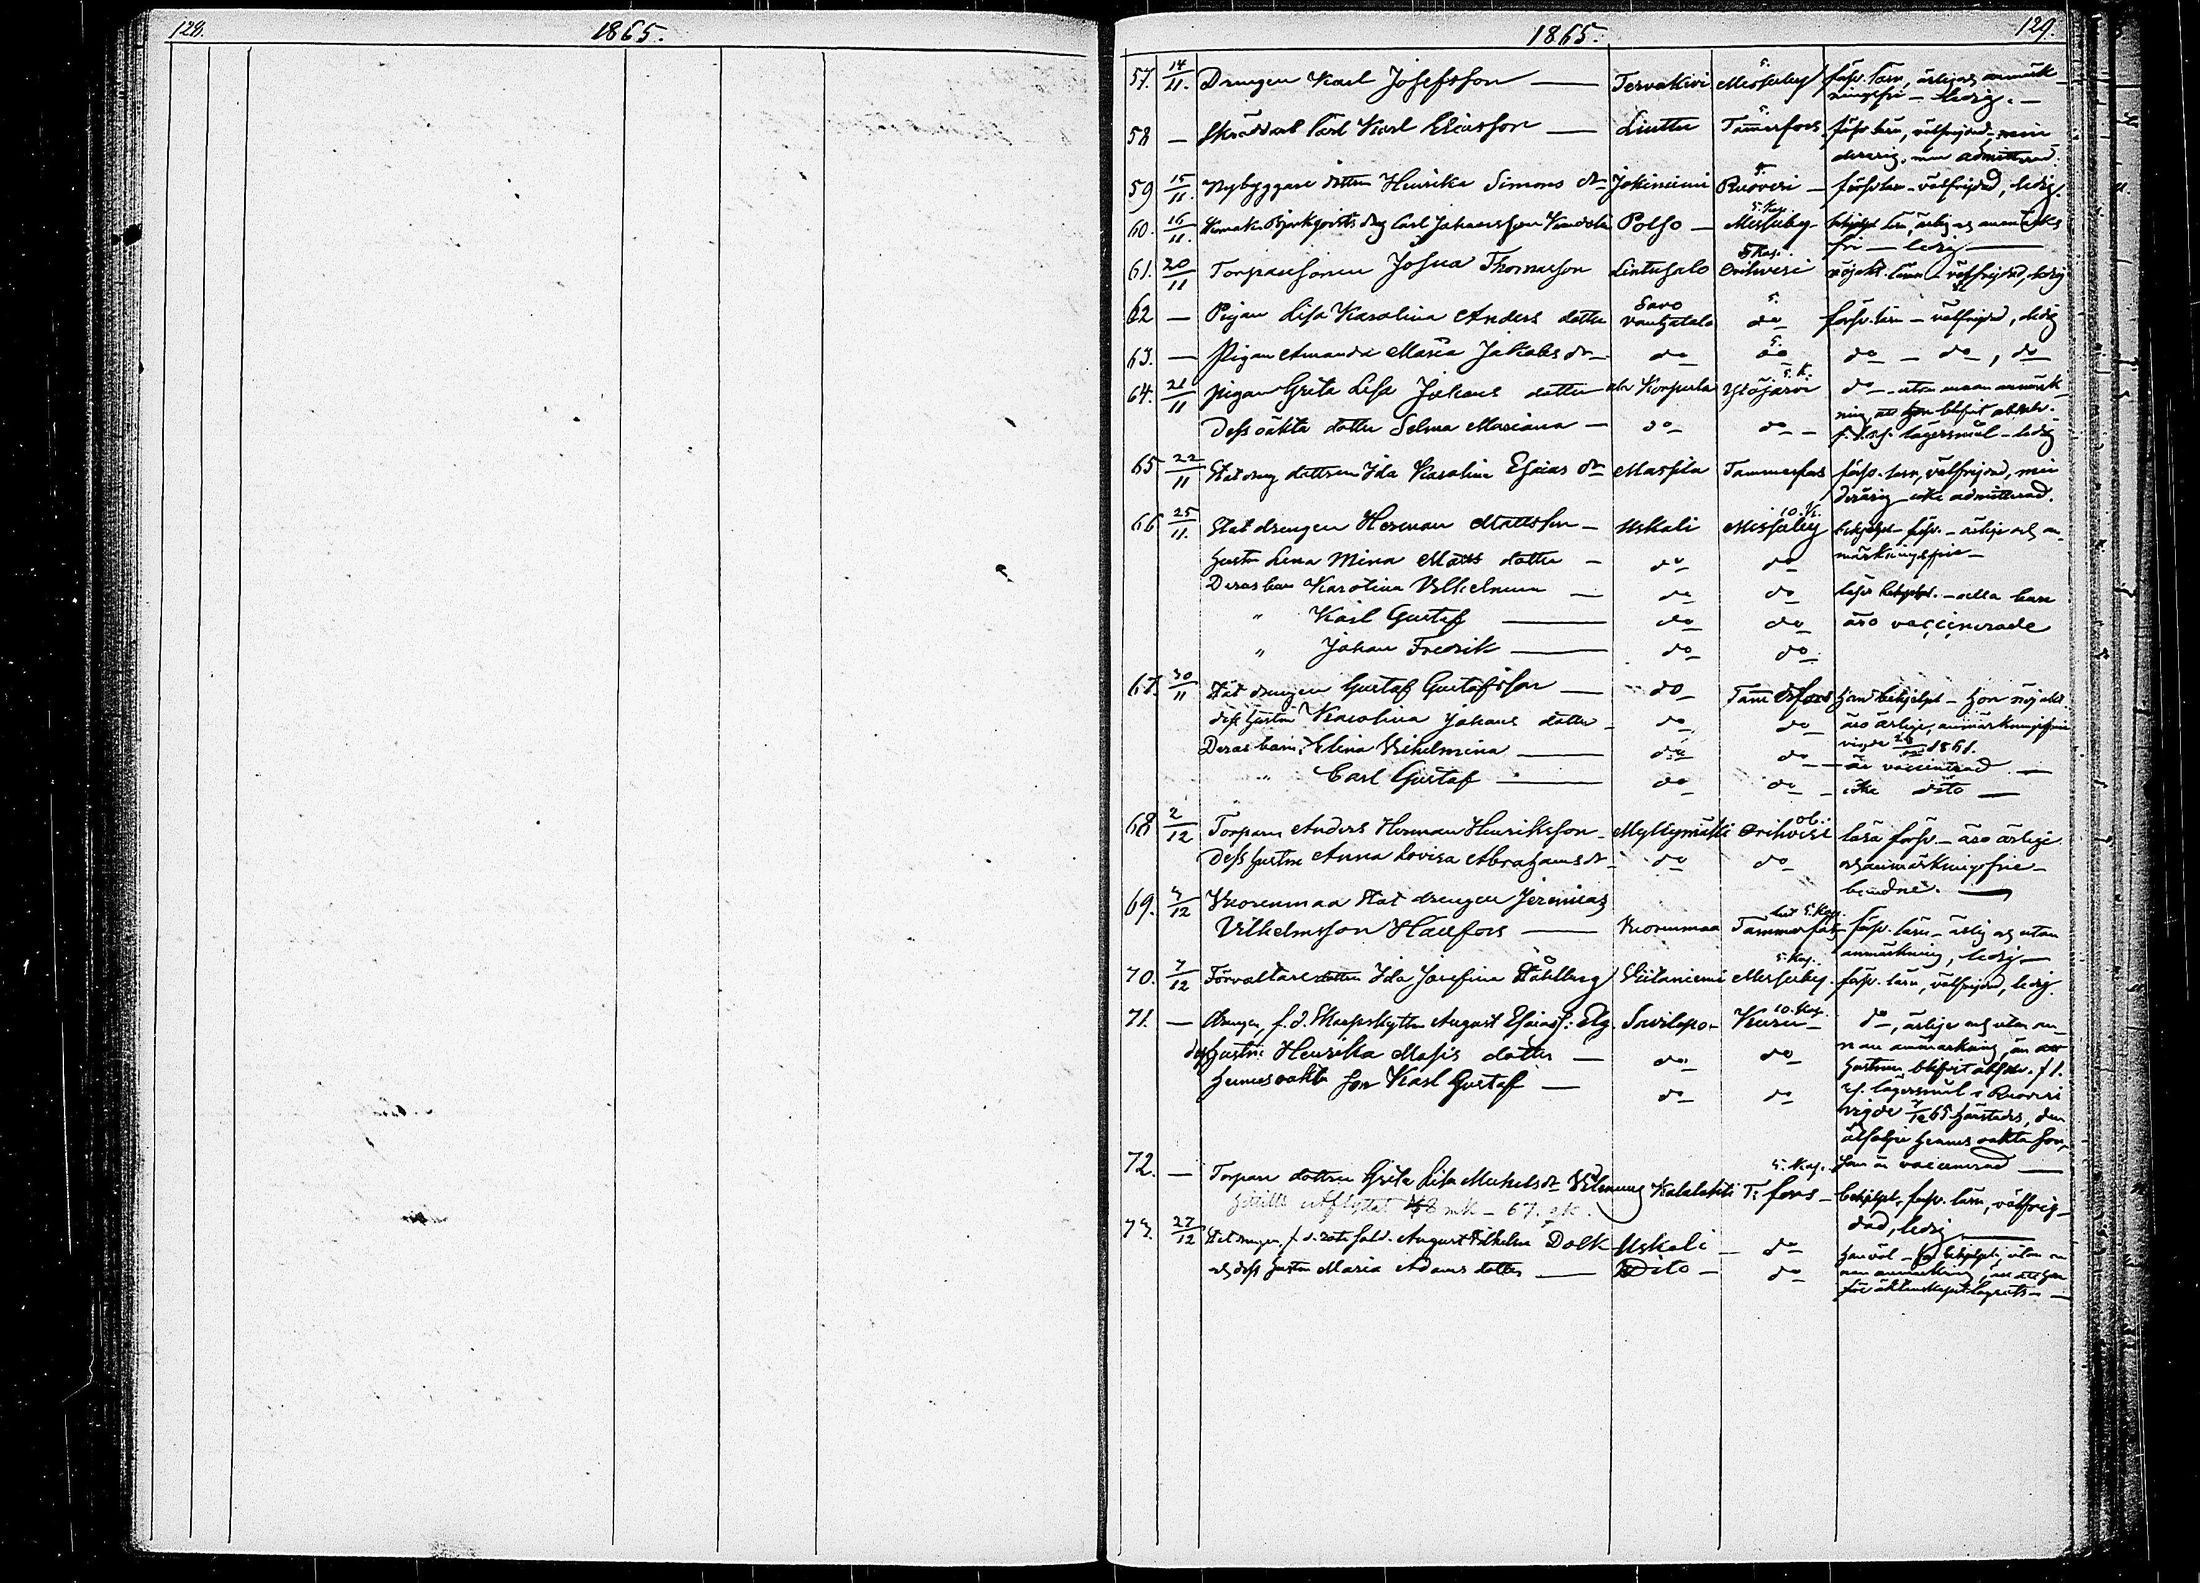 128.
1865.
1865.
129.
57. 14/11. Drengen Karl Josefsson — Tervakivi Messuby försv. läsn, ärlig och anmärk-
ningsfri — ledig. —
58 — Skräddare Carl Karl Eliasson — Liuttu Tammerfors försv. läsn, välfrejdad, min
derårig, men admitterad.
59 15/11. Nybyggare dottren Henrika Simons dr Jokiniemi Ruovesi — försv. läsn — välfrejdad, ledig.
60. 16/11. drg Carl Johansson Polso — Messuby — läsn, ärlig och anmärknings
fri — ledig —
61. 20/11 Torparesonen Josua Thomasson Liutusalo Orihvesi nöjakt. läsn — välfrejdad, ledig
62 — Pigan Lisa Karolina Anders dotter Savo do försv. läsn — välfrejdad, ledig
63. — Pigan Amanda Maria Jakobs dr — do do do — do, do
64. 21/11 Pigan Greta Lisa Johans dotter Ylöjärvi do — utan annan anmärk
ning, än hon blifvit absolv.
Dess oäkta dotter Selma Mariana — do do — lägersmål — ledig
65 22/11 Stat dreng dottren Ida Karolina Esaias dr Massila Tammerfors försv. läsn, välfrejdad, min
derårig icke admitterad.
66 25/11. Stat drengen Herman Mattsson — Uskali Messuby behjelpl. försv. — ärlige och an
märkningsfrie —
hustru Lena Mina Matts dotter — do do
Deras barn Karolina Vilhelmina — do do läser behjelpl. — alla barn
" Karl Gustaf — do do äro vaccinerade
" Johan Fredrik — do do
67. 30/11 Stat drengen Gustaf Gustafsson — do Tammerfors han behjelpl — hon nöjakt
dess hustru Karolina Johans dotter — do do äro ärlige, anmärkningsfrie
vigde 1861.
Deras barn, Elina Vilhelmina — do do — är vaccinerad —
" Carl Gustaf — do do — icke dito —
68 2/12 Torparen Anders Herman Henriksson — Myllymäki Orihvesi läsa försv. — äro ärlige
Dess hustru Anna Lovisa Abrahams dr — do do och anmärkningsfrie —
69. /12 Vuorenmaa Stat drengen Jeremias
Vilhelmsson Hallfors — Vuorenmaa Tammerfors försv. läsn — ärlig och utan
anmärkning, ledig —
70. 7/12 Förvaltare dottren Ida Josefina Ståhlberg Viitaniemi Messuby försv. läsn, välfrejdad, ledig
71. — Drengen, f. d. Skarpskytten August Esaiass: Elg. Savilepo — Kuru — do, ärlige och utan an
nan anmärkning, än att
dess hustru Henrika Mats dotter — do do hustrun blifvit absolv. f 1.
hennes oäkta son Karl Gustaf — do do lägersmål i Ruovesi
vigde 7/12 65 härstädes, den
åtföljer hennes oäkta son,
72. — som är vaccinerad —
Torpare dottren Greta Lisa Mickels dr Kalalahti T:fors — behjelpl, försv. läsn, välfrej
dad, ledig —
73. 27/12 Stat drengen, f. d. August Vilhelm Dolk Uskali — do
och dess hustru Maria Adams dotter — Dito — do